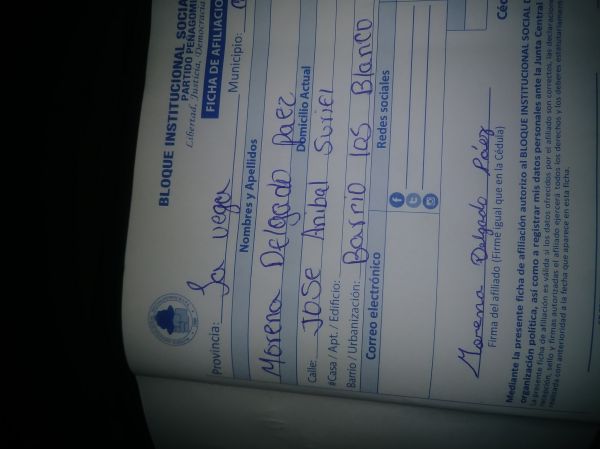 BLOQUE INSTITUCIONAL SOCIAL
PARTIDO PEÑAGOMI
Libertad, Justicia, Democracia
FICHA DE AFILIACIO
Provincia: La Vega Municipio:
Nombres y Apellidos
Morena Delgado Paez
Domicilio Actual
Calle: JOSE Anibal Suriel
#Casa / Apt. / Edificio:
Barrio / Urbanización: Barrio los Blanco
Correo electrónico Redes sociales
Morena Delgado Páez
Firma del afiliado (Firme igual que en la Cédula)
Céd
Mediante la presente ficha de afiliación autorizo al BLOQUE INSTITUCIONAL SOCIAL D
organización política, así como a registrar mis datos personales ante la Junta Central
La presente ficha de afiliación es válida si los datos ofrecidos por el afiliado son correctos, las declaraciones
recepción, sello y firmas autorizadas el afiliado ejercerá todos los derechos y los deberes estatutariamente
realizada con anterioridad a la fecha que aparece en esta ficha.